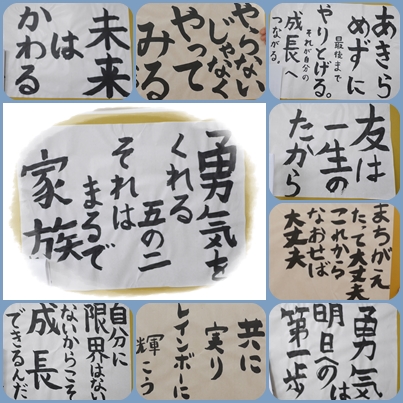 未来
は
かわる
やらない
じゃなく
やって
みる
あきら
めずに
やりとげる。
最後まで
それが自分の
成長へ
つながる。
勇気を
くれる
五の二
それは
まるで
家族
友は
一生の
たから
まちがえ
たって大丈夫
これから
なおせば
大丈夫
自分に
限界はない
ないからこそ
成長
できるんだ
共に
実り
レインボーに
輝こう
勇気は
明日への
第一歩